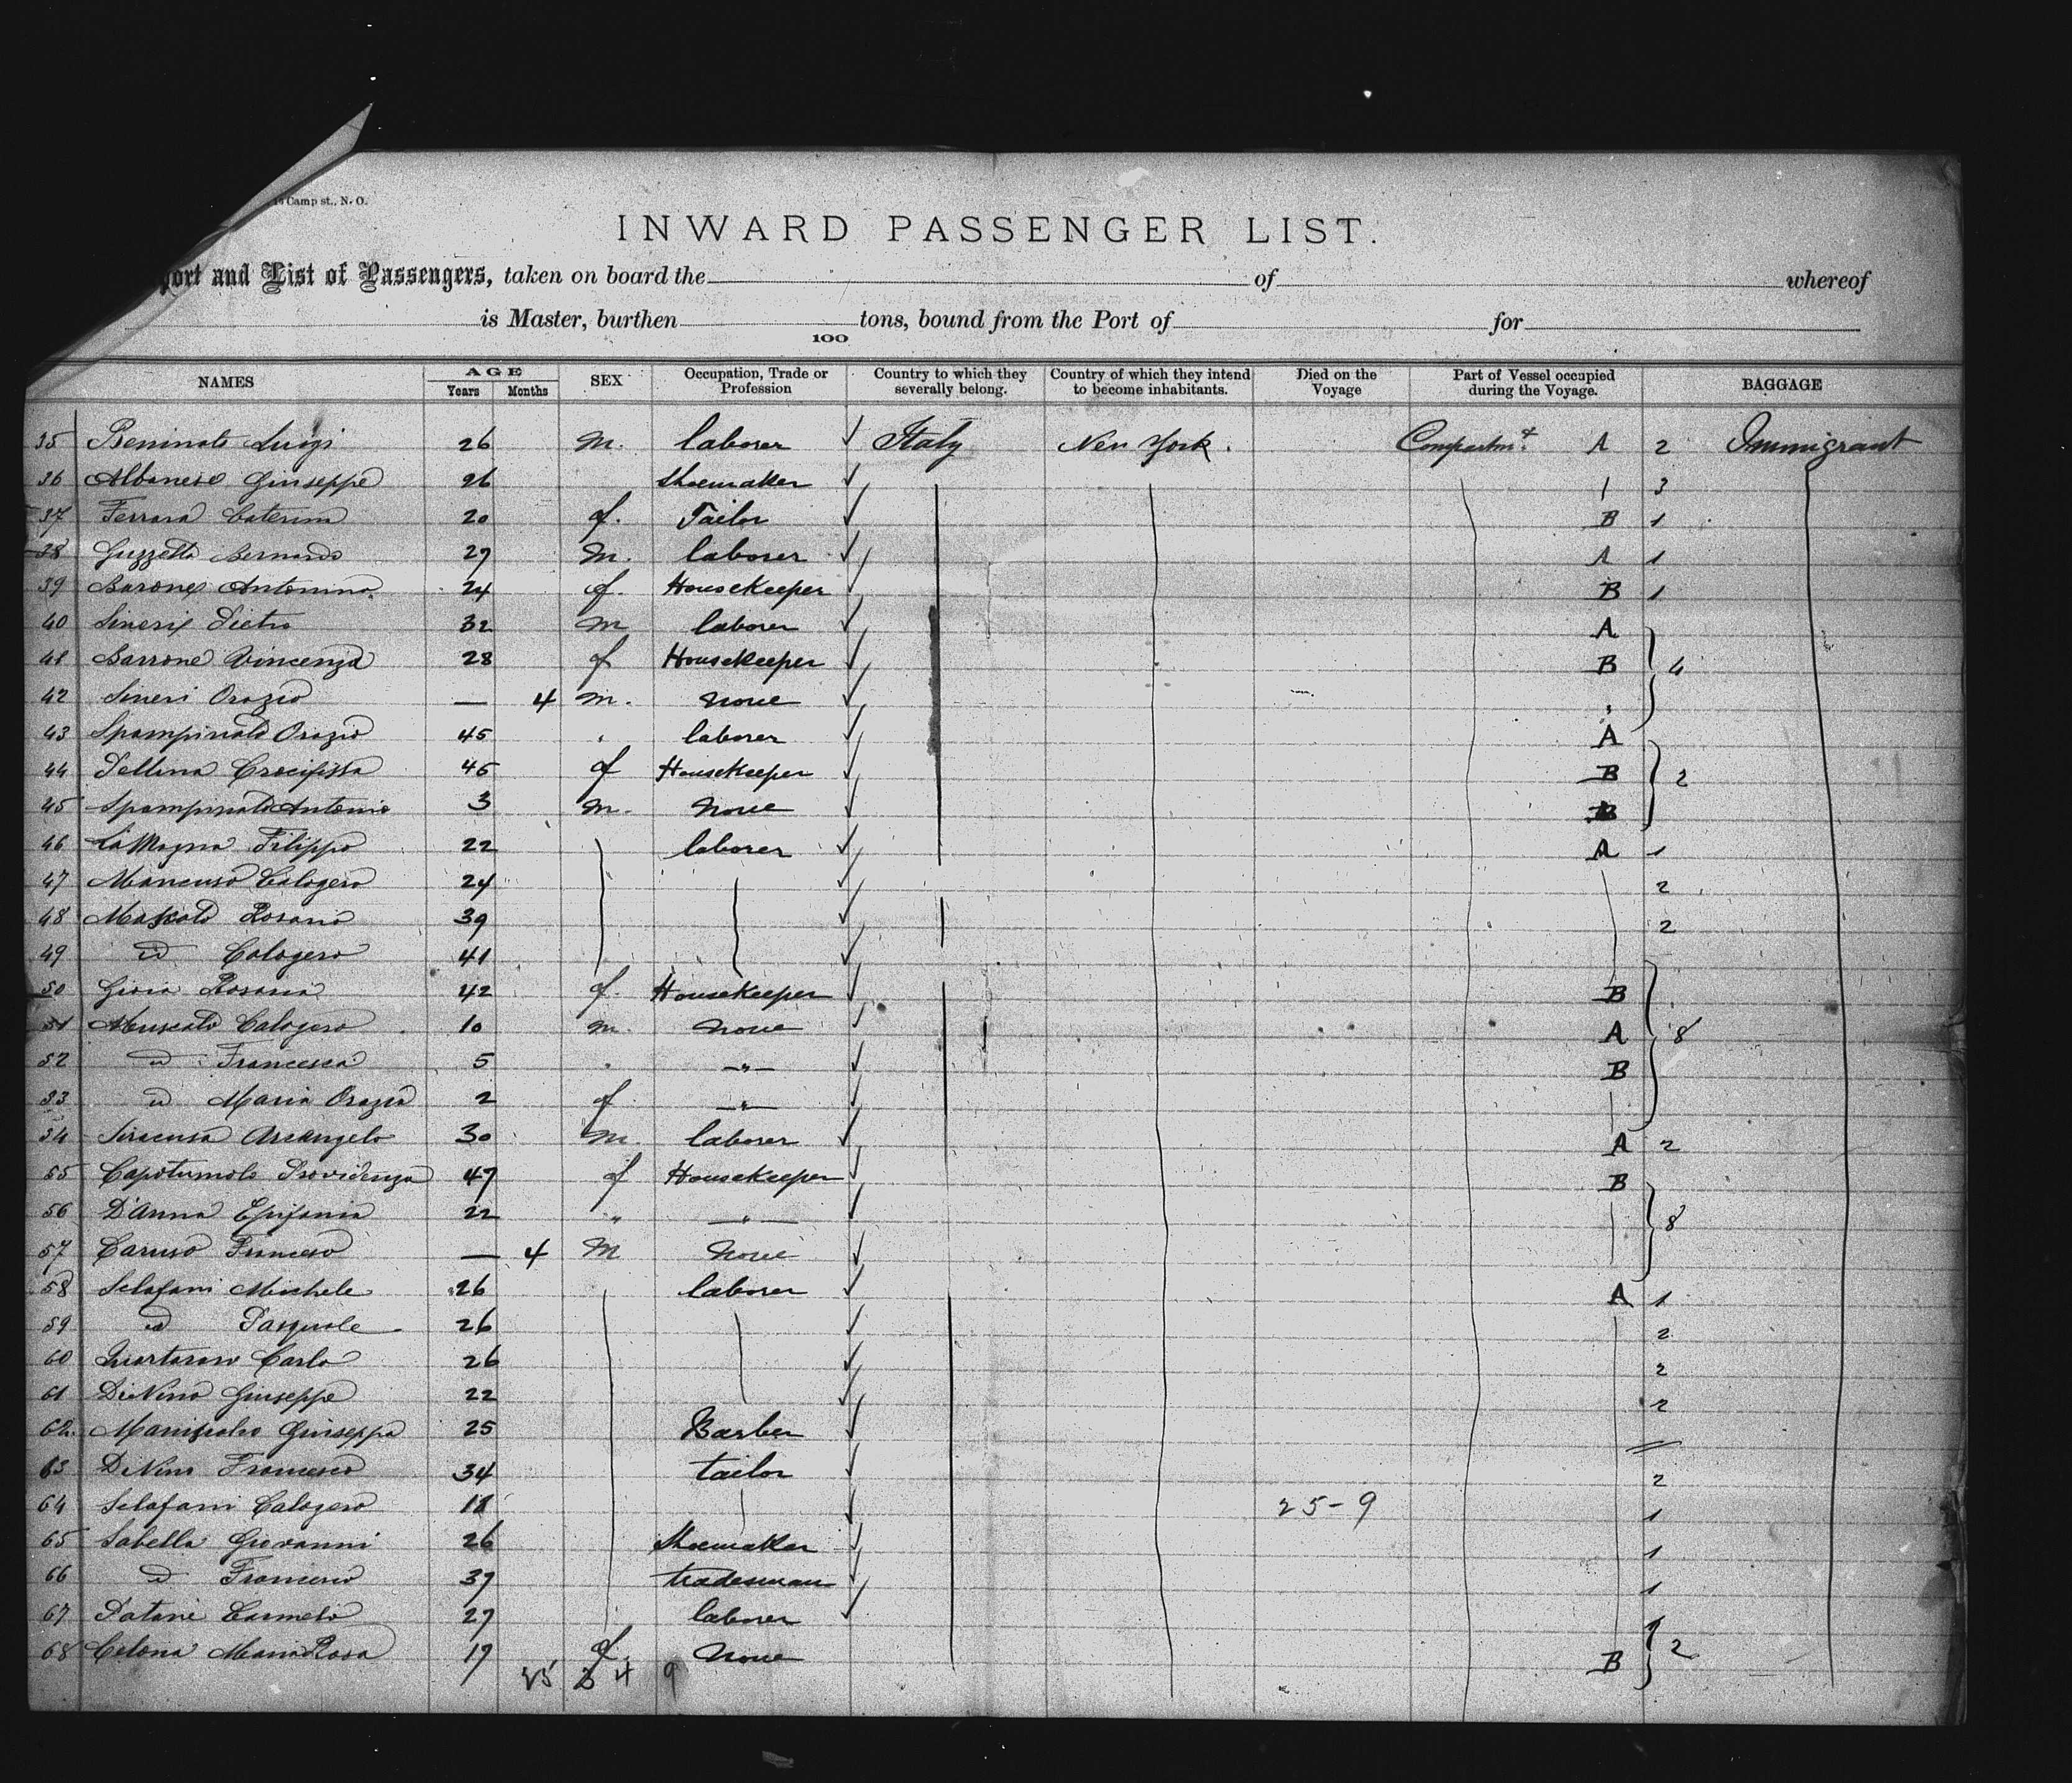 Camp st., N. O.
INWARD PASSENGER LIST.
port and List of Passengers, taken on board the of whereof
is Master, burthen tons, bound from the Port of for
100
NAMES AGE Years Months SEX Occupation, Trade or Profession Country to which they severally belong. Country of which they intend to become inhabitants. Died on the Voyage Part of Vessel occupied during the Voyage. BAGGAGE
35 Beninato Luigi 26 M. laborer Italy New York. Compartmt. A 2 Immigrant
36 Albanese Giuseppe 26 Shoemaker 3
37 Ferrara Caterina 20 f. Tailor B 1
38 Guzzetta Bernardo 27 M. laborer A 1
39 Barone Antonina 24 f. Housekeeper B 1
40 Sineri Pietro 32 M laborer A
41 Barrone Vincenza 28 f Housekeeper B 4
42 Sineri Orazio — 4 M. None "
43 Spampinato Orazio 45 " laborer A
44 Pellina Crocifissa 45 f Housekeeper B 2
45 Spampinato Antonio 3 M. None B
46 LaMagna Filippo 22 laborer A 1
47 Mancuso Calogero 24 2
48 Moscato Rosario 39 2
49 id Calogero 41
50 Gioia Rosaria 42 f. Housekeeper B
51 Muscato Calogero 10 M. None A 8
52 id Francesca 5 " —"— B
53 id Maria Orazia 2 f —"—
54 Siracusa Arcangelo 30 M. laborer A 2
55 Capotumolo Providenza 47 f Housekeeper B
56 D'Anna Epifania 22 " —"— 8
57 Caruso Francesco — 4 M None
58 Sclafani Michele 26 laborer A 1
59 id Pasquale 26 2
60 Quartararo Carlo 26 2
61 DiNino Giuseppe 22 2
62 Giuseppe 25 Barber
63 DiNino Francesco 34 tailor 2
64 Sclafani Calogero 18 25-9 1
65 Sabella Giovanni 26 Shoemaker 1
66 id Francesco 37 tradesman 1
67 Patanè Carmelo 27 laborer
68 Celona Maria Rosa 19 f. None B 2
25 4 9